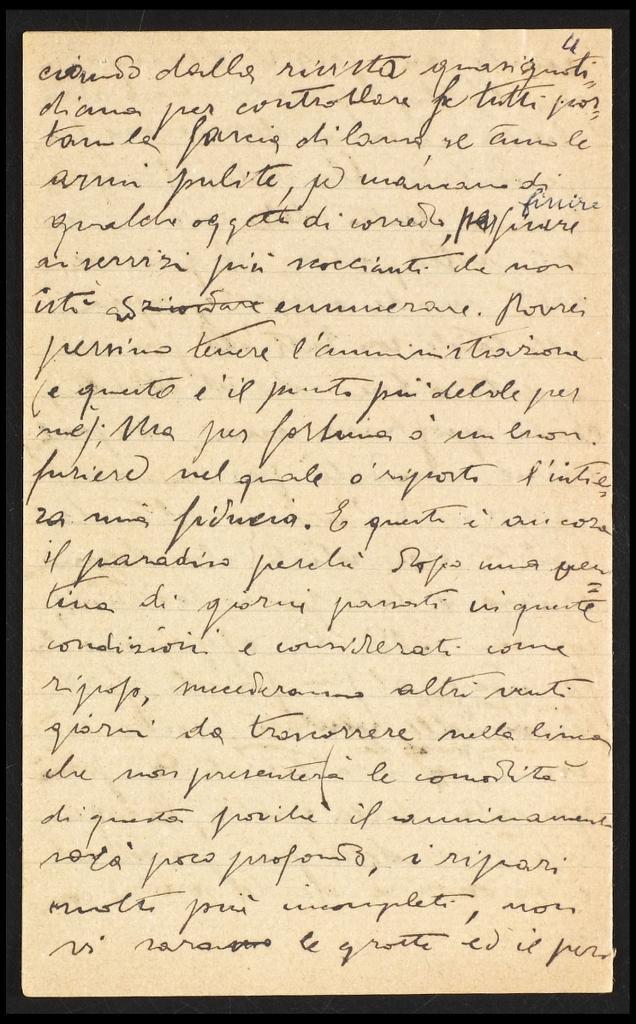 4
ciando dalla rivista quasi quoti=
diana per controllare se tutti por=
tano la fascia di lana, se ànno le
armi pulite, se mancano di
qualche oggetto di corredo, per finire finire
ai servizi più scoccianti che non
istò ad ricordare enumerare. Dovrei
persino tenere l'amministrazione
(e questo è il punto più debole per
me); Ma per fortuna ò un buon
furiere nel quale ò riposto l'intie=
ra mia fiducia. E questo è ancora
il paradiso perchè dopo una ven=
tina di giorni passati in queste
condizioni e considerati come
riposo, succederanno altri venti
giorni da trascorrere nella linea
che non presenterà le comodità
di questa poichè il camminamento
sarà poco profondo, i ripari
molto più incompleti, non
vi saranno le grotte ed il peri